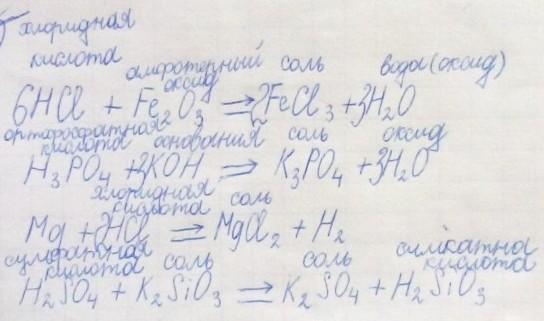 хлоридная
кислота
амфотерный соль вода (оксид)
оксид
6HCl + Fe₂O₃ ⇒ 2FeCl₃ + 3H₂O
ортофосфатная
кислота основания соль оксид
H₃PO₄ + 3KOH ⇒ K₃PO₄ + 3H₂O
хлоридная соль
кислота
Mg + 2HCl = MgCl₂ + H₂
сульфатная силікатна
кислота соль соль кислота
H₂SO₄ + K₂SiO₃ = K₂SO₄ + H₂SiO₃